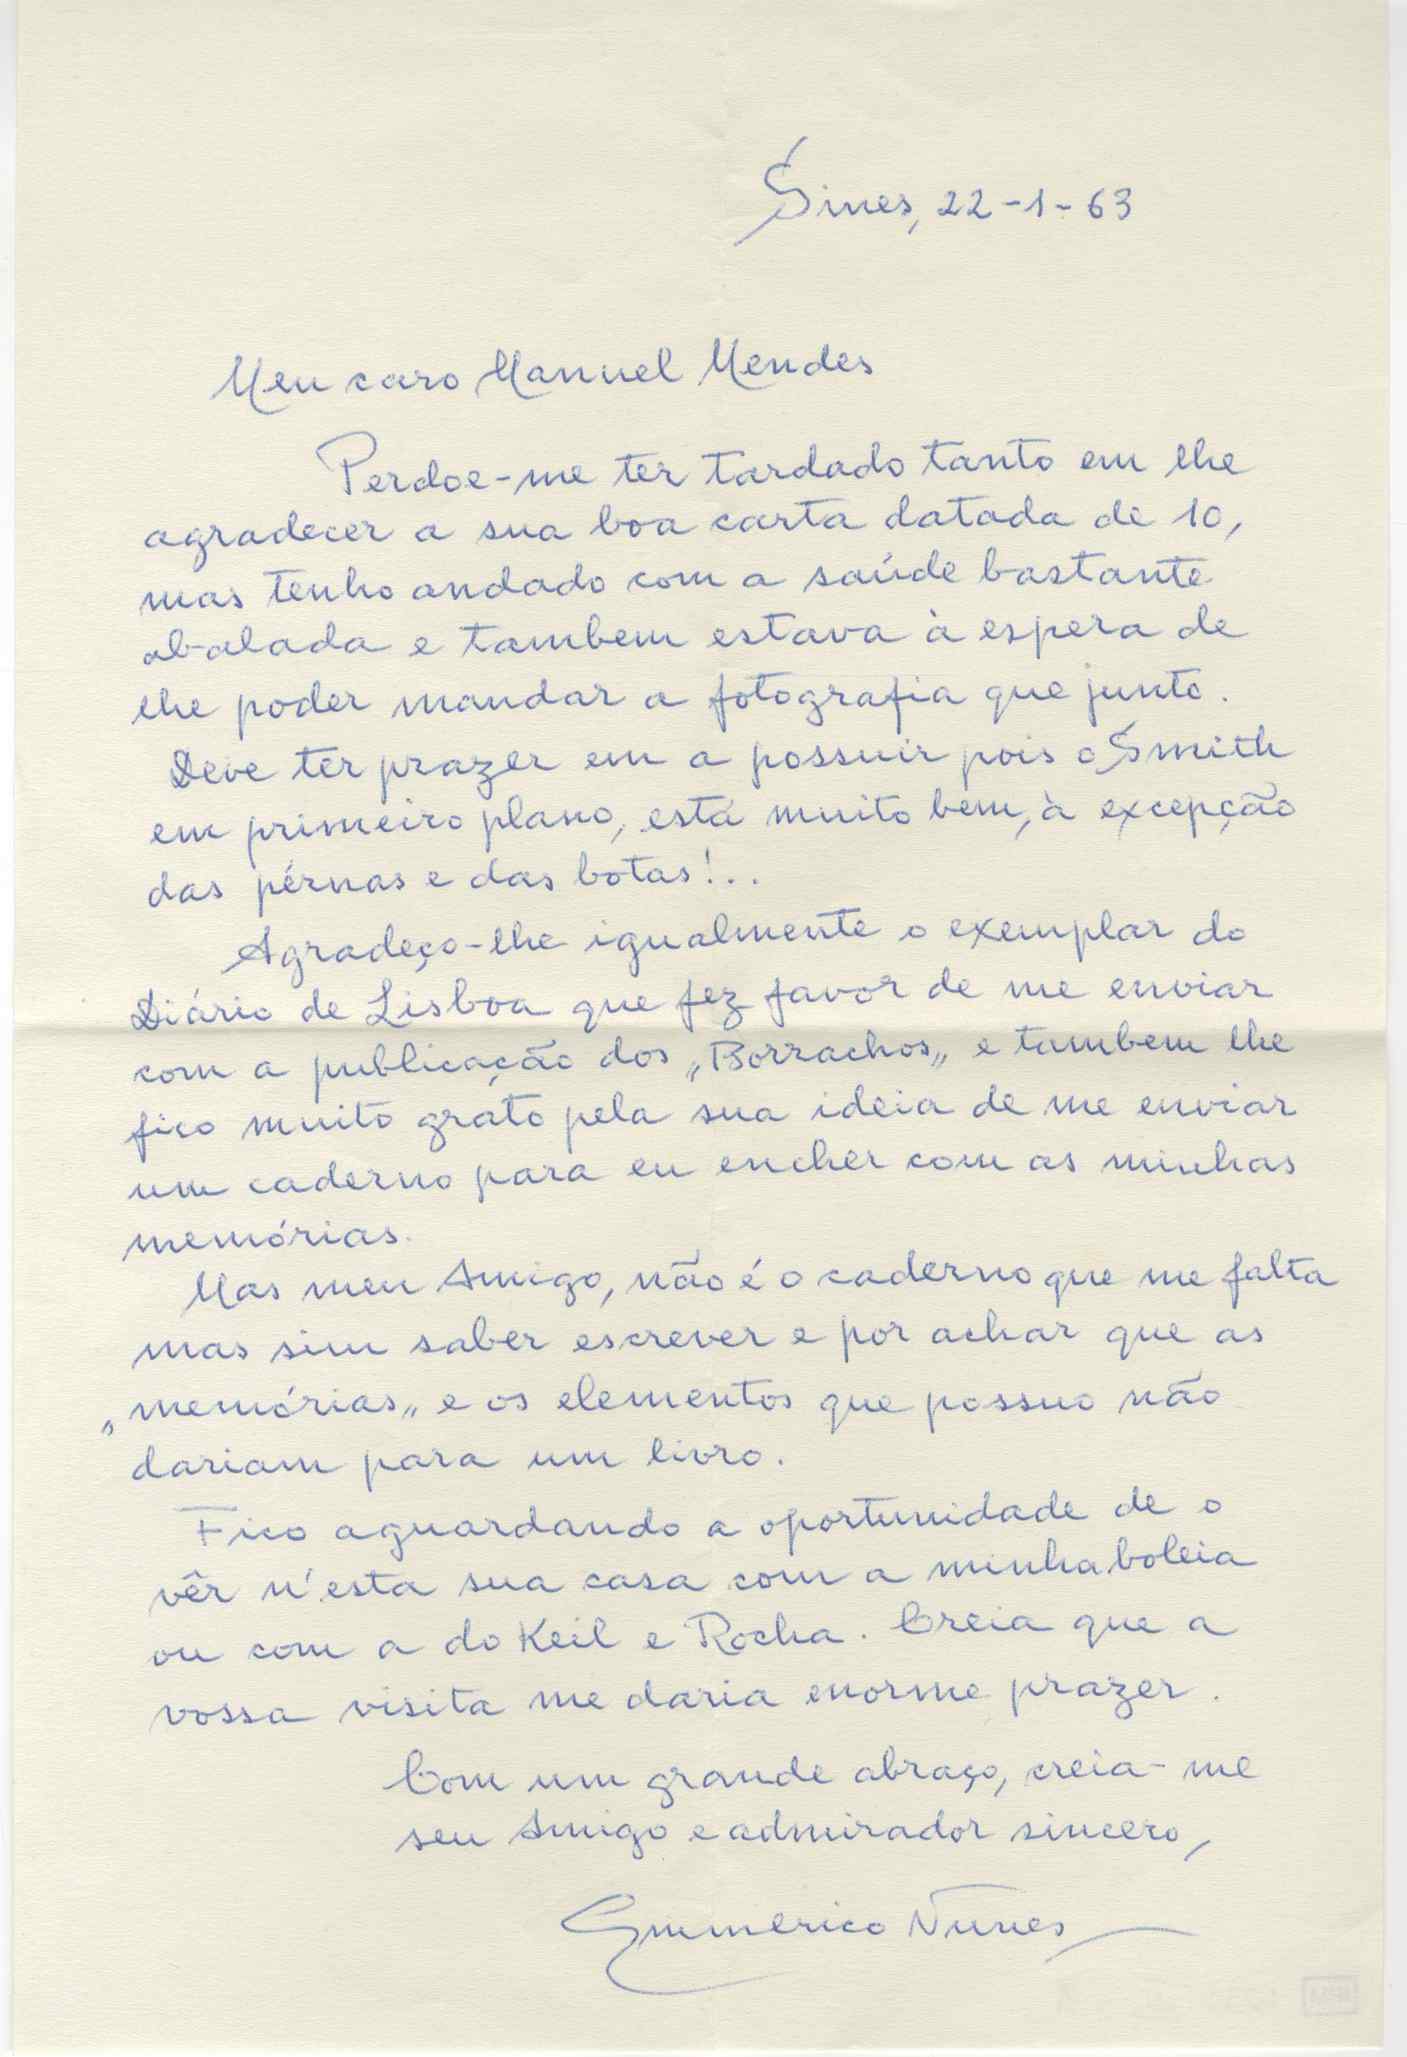 Sines, 22-1-63
Meu caro Manuel Mendes
Perdoe-me ter tardado tanto em lhe
agradecer a sua boa carta datada de 10,
mas tenho andado com a saúde bastante
abalada e tambem estava à espera de
lhe poder mandar a fotografia que junto.
Deve ter prazer em a possuir pois o Smith
em primeiro plano, está muito bem, à excepção
das pérnas e das botas!..
Agradeço-lhe igualmente o exemplar do
Diário de Lisboa que fez favor de me enviar
com a publicação dos „Borrachos„ e tambem lhe
fico muito gráto pela sua ideia de me enviar
um caderno para eu encher com as minhas
memórias.
Mas meu Amigo, não é o caderno que me falta
mas sim saber escrever e por achar que as
„memórias„ e os elementos que possuo não
dariam para um livro.
Fico aguardando a oportunidade de o
vêr n'esta sua casa com a minha boleia
ou com a do Keil e Rocha. Creia que a
vossa visita me daria enorme prazer.
Com um grande abraço, creia-me
seu Amigo e admirador sincero,
Emmerico Nunes